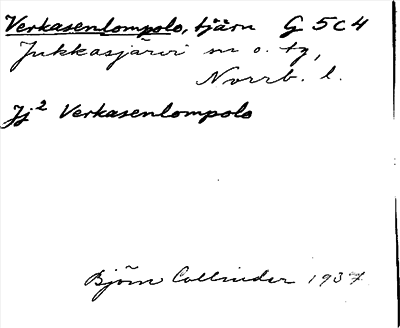 Verkasenlompolo, tjärn G 5 C 4
Jukkasjärvi sn o. tg,
Norrb. l.
Jj² Verkasenlompolo
Björn Collinder 1937